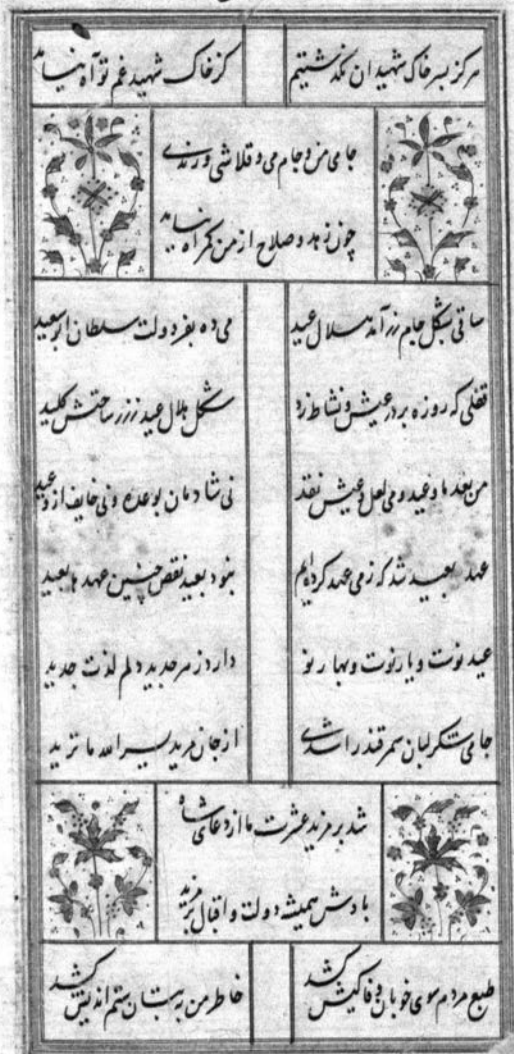 هرگز بسر خاک شهیدان نگذشتیم
کز خاک شهید غم تو آه نیاید
جامی من و جام می و قلاشی و رندی
چون زهد و صلاح از من گمراه نیاید
ساقی بشکل جام زر آمد هلال عید
می ده بفر دولت سلطان ابوسعید
قفلی که روزه بر در عیش و نشاط زد
شکل هلال عید ز زر ساختش کلید
من بعد ما و عید و می لعل و عیش نقد
نی شادمان بوعده و نی خایف از وعید
عهد بعید شد که ز می عهد کرده‌ایم
نبود بعید نقض چنین عهدها بعید
عید نوت و یار نوت و بهار نو
دارد ز هر جدید دلم لذت جدید
جامی شکر لبان سمرقند را شدی
از جان مرید یسر الله ما ترید
شد بر مزید عشرت ما از دعای شاه
بادش همیشه دولت و اقبال بر مزید
طبع مردم سوی خوبان وفاکیش کشد
خاطر من به بتان ستم اندیش کشد